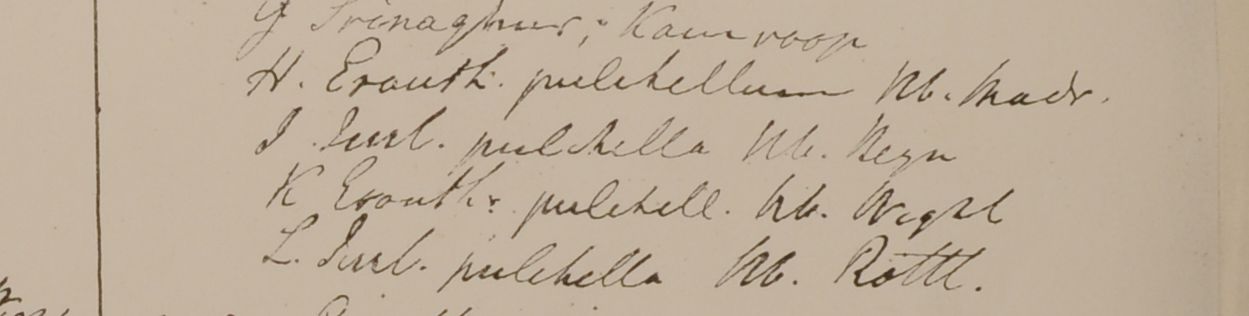 G Srinaghur; Kamroop
H. Eranth. pulchellum Hb. Madr.
I Just. pulchella Hb. Heyn
K Eranth. pulchell. Hb. Wight
L. Just. pulchella Hb. Rottl.